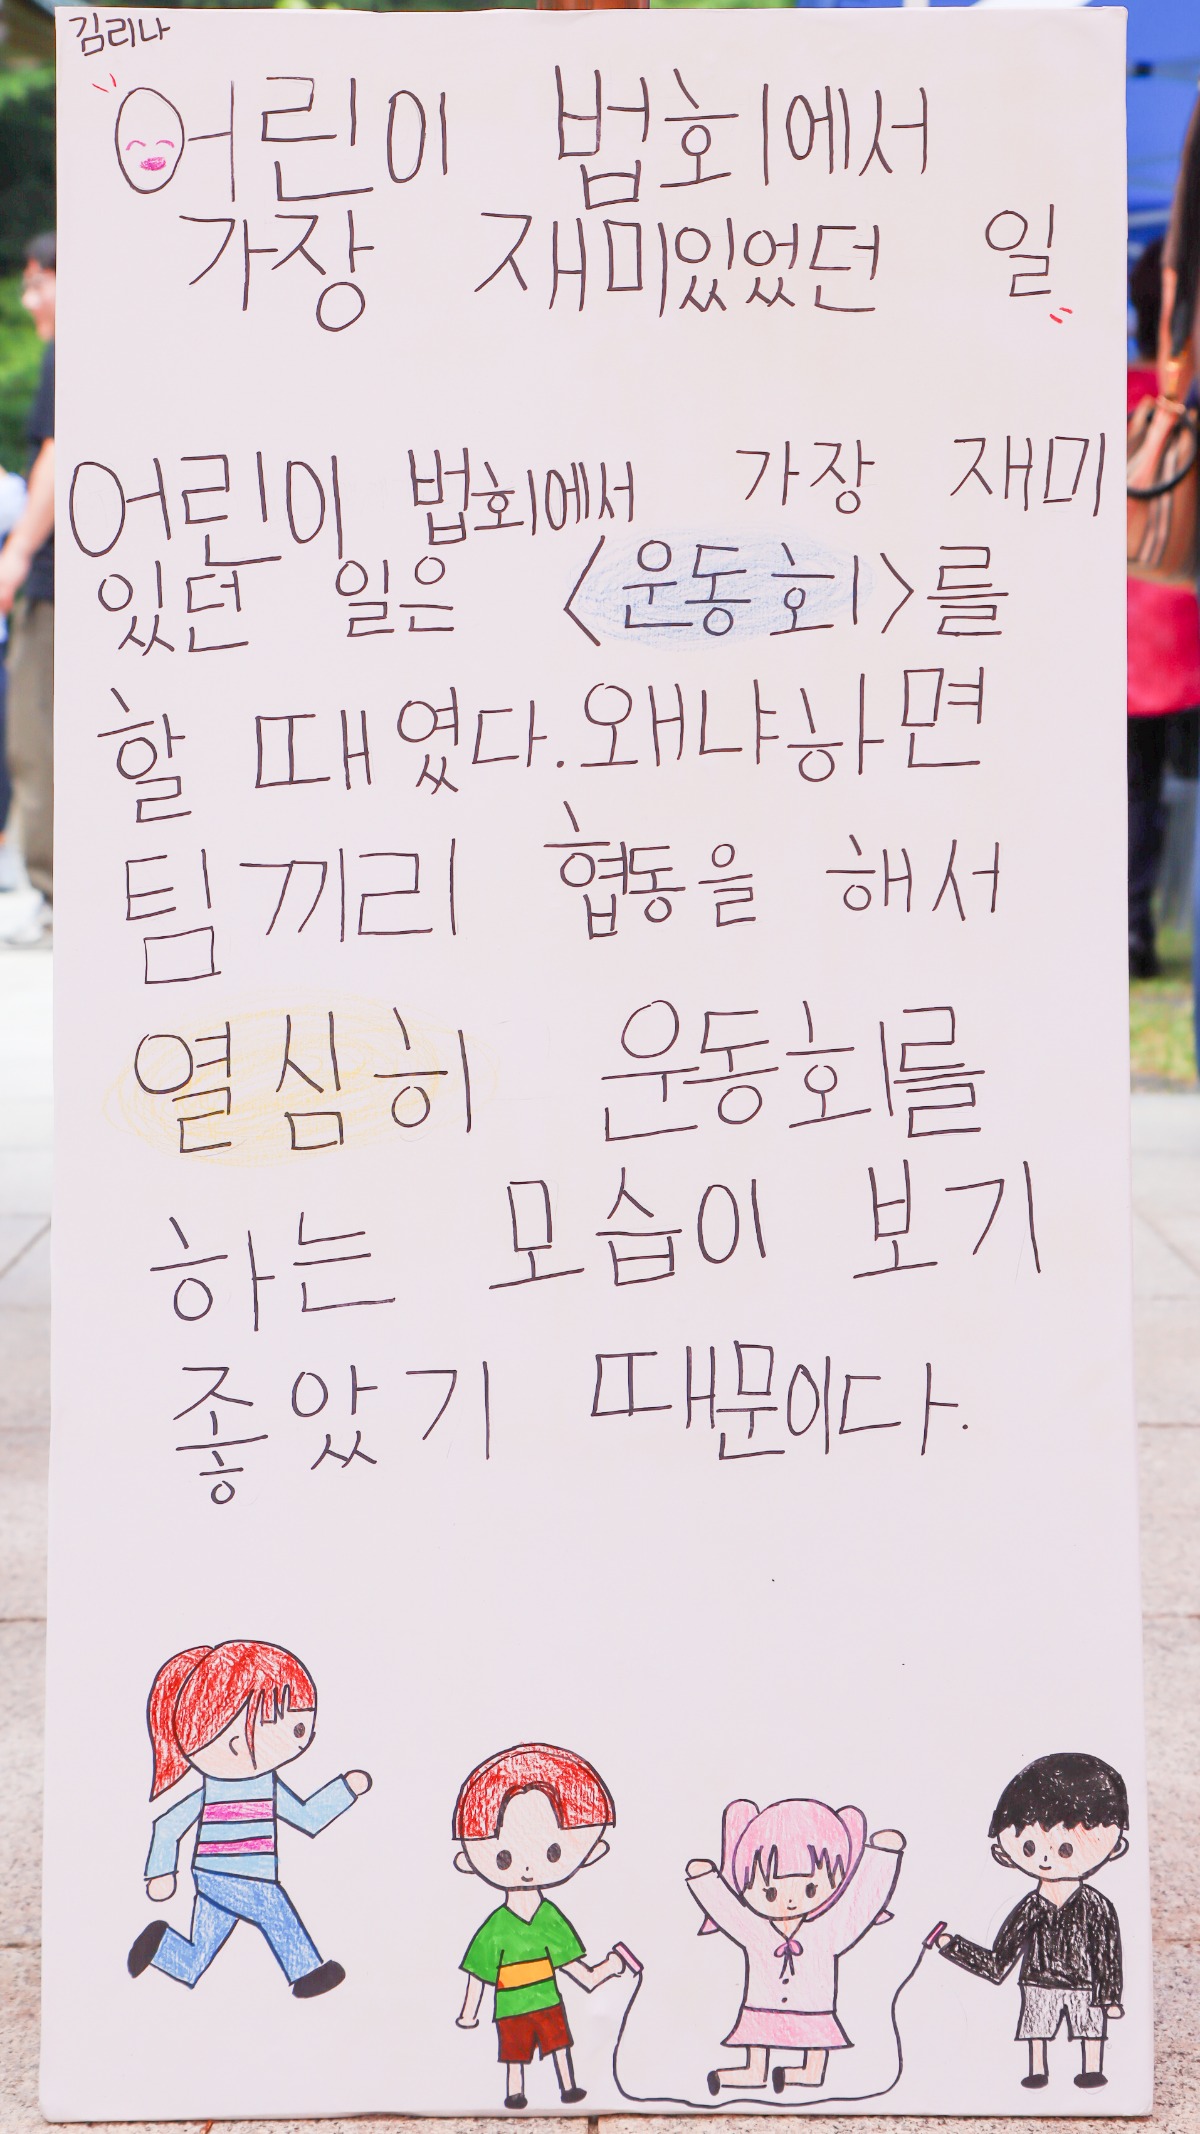 김리나
어린이 법회에서
가장 재미있었던 일
어린이 법회에서 가장 재미
있던 일은 <운동회>를
할 때였다. 왜냐하면
팀끼리 협동을 해서
열심히 운동회를
하는 모습이 보기
좋았기 때문이다.